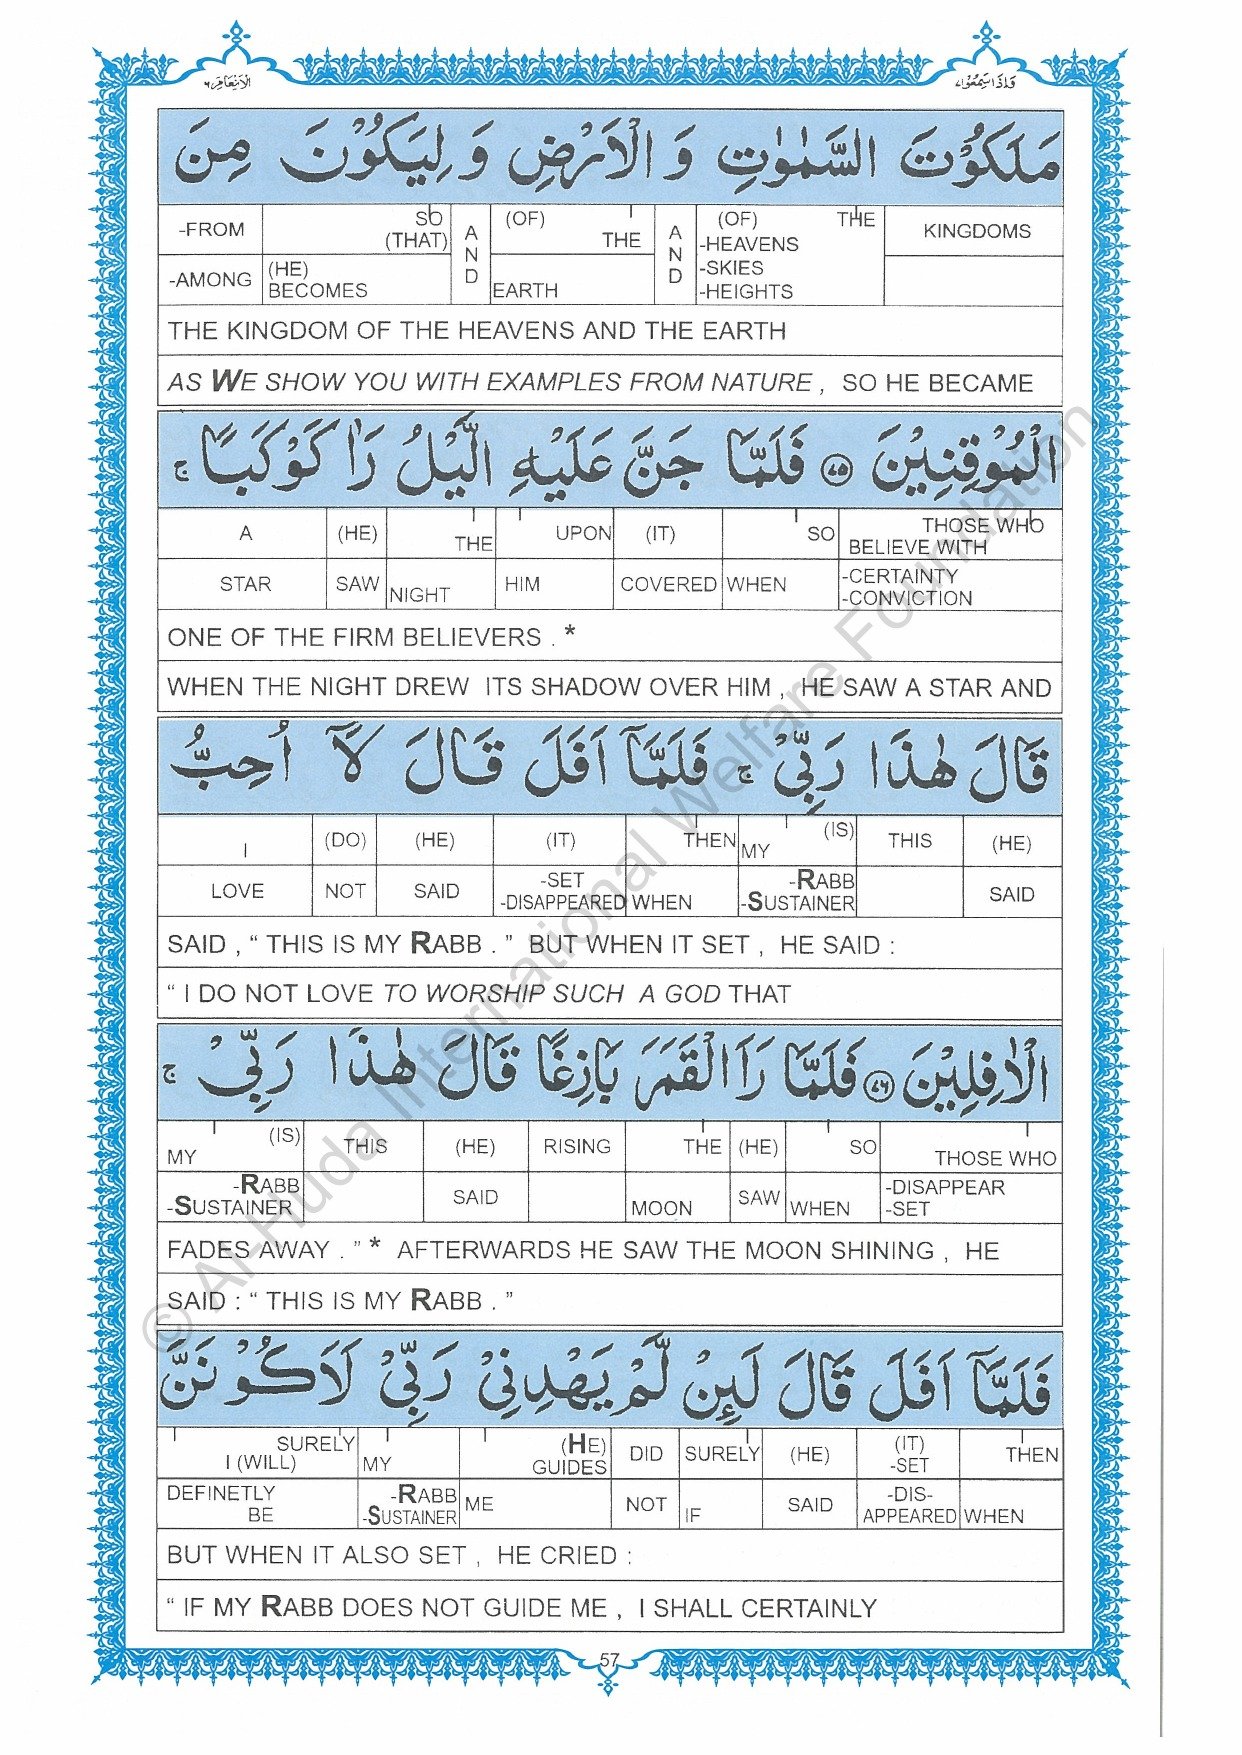 الانعام ٦
واذا سمعوا ٧
مَلَكُوْتَ السَّمٰوٰتِ وَ الْاَرْضِ وَ لِيَكُوْنَ مِنَ
-FROM SO (THAT) A N D (OF) THE A N D (OF) THE KINGDOMS
-AMONG (HE) BECOMES EARTH -HEAVENS -SKIES -HEIGHTS
THE KINGDOM OF THE HEAVENS AND THE EARTH
AS WE SHOW YOU WITH EXAMPLES FROM NATURE , SO HE BECAME
الْمُوْقِنِيْنَ ۷۵ فَلَمَّا جَنَّ عَلَيْهِ الَّيْلُ رَاٰ كَوْكَبًا ۚ
A (HE) THE UPON (IT) SO THOSE WHO BELIEVE WITH
STAR SAW NIGHT HIM COVERED WHEN -CERTAINTY -CONVICTION
ONE OF THE FIRM BELIEVERS . *
WHEN THE NIGHT DREW ITS SHADOW OVER HIM , HE SAW A STAR AND
قَالَ هٰذَا رَبِّيْ ۚ فَلَمَّآ اَفَلَ قَالَ لَآ اُحِبُّ
I (DO) (HE) (IT) THEN MY (IS) THIS (HE)
LOVE NOT SAID -SET -DISAPPEARED WHEN -RABB -SUSTAINER SAID
SAID , “ THIS IS MY RABB . ” BUT WHEN IT SET , HE SAID :
“ I DO NOT LOVE TO WORSHIP SUCH A GOD THAT
الْاٰفِلِيْنَ ۷۶ فَلَمَّا رَاَ الْقَمَرَ بَازِغًا قَالَ هٰذَا رَبِّيْ ۚ
MY (IS) THIS (HE) RISING THE (HE) SO THOSE WHO
-RABB -SUSTAINER SAID MOON SAW WHEN -DISAPPEAR -SET
FADES AWAY . ” * AFTERWARDS HE SAW THE MOON SHINING , HE
SAID : “ THIS IS MY RABB . ”
فَلَمَّآ اَفَلَ قَالَ لَئِنْ لَّمْ يَهْدِنِيْ رَبِّيْ لَاَكُوْنَنَّ
SURELY I (WILL) MY (HE) GUIDES DID SURELY (HE) (IT) -SET THEN
DEFINETLY BE -RABB -SUSTAINER ME NOT IF SAID -DIS- APPEARED WHEN
BUT WHEN IT ALSO SET , HE CRIED :
“ IF MY RABB DOES NOT GUIDE ME , I SHALL CERTAINLY
57
© Al-Huda International Welfare Foundation